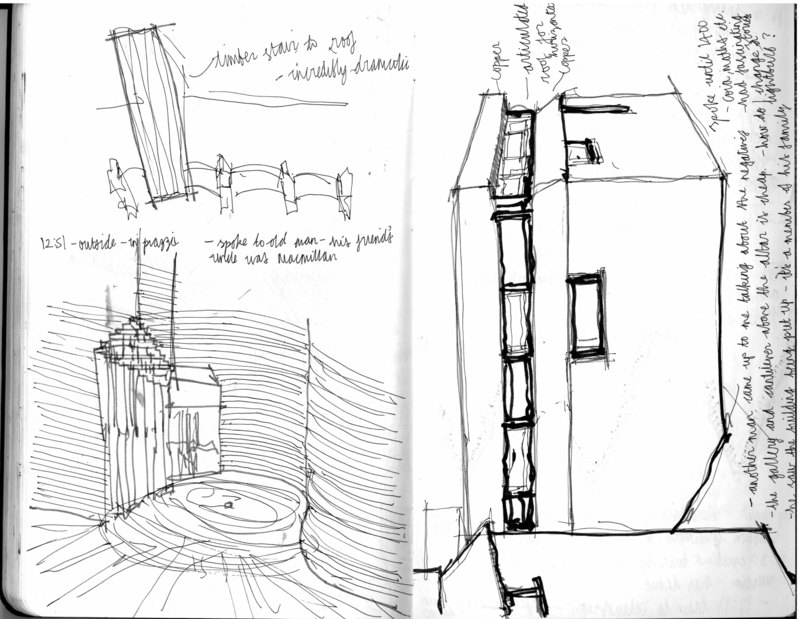 timber stair to roof
- incredibly dramatic
12:51 - outside - in piazza
- spoke to old man - his friend's
uncle was Macmillan
copper
articulated
roof for
horizontal
copper
spoke until 1400
- another man came up to me talking about the negatives - had fascinating stories
- the gallery and cantilever above the altar is cheap - how do I change it
- he saw the building being put up - it's a member of his family